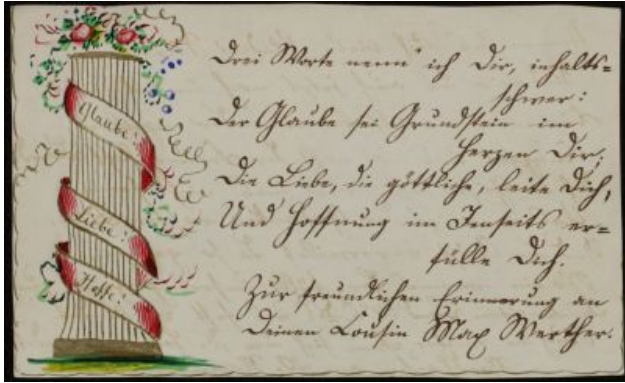 Glaube!
Liebe!
Hoffe!
Drei Worte nenn' ich Dir, inhalts=
schwer:
Der Glaube sei Grundstein im
Herzen Dir,
Die Liebe, die göttliche, leite Dich,
Und Hoffnung im Jenseits er=
fülle Dich.
Zur freundlichen Erinnerung an
Deinen Cousin Max Werther.